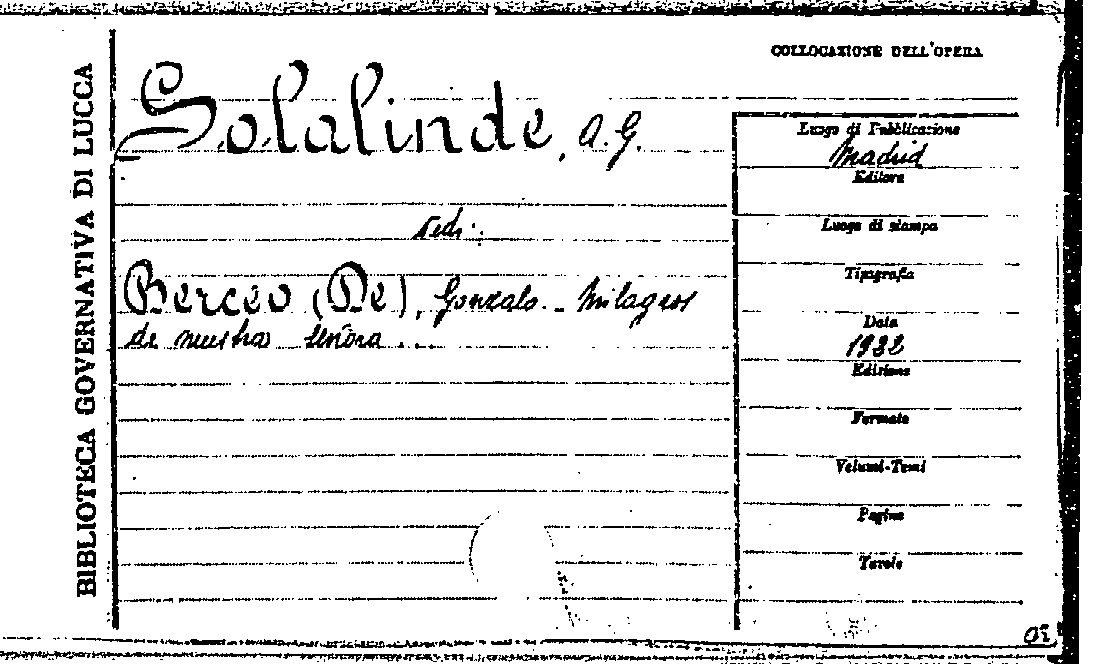 BIBLIOTECA GOVERNATIVA DI LUCCA
COLLOCAZIONE DELL'OPERA
Solalinde, A. G.
vedi:
Berceo (De), Gonzalo. - Milagros
de nuestra señora ...
Luogo di Pubblicazione
Madrid
Editore
Luogo di stampa
Tipografia
Data
1932
Edizione
Formato
Volumi-Tomi
Pagine
Tavole